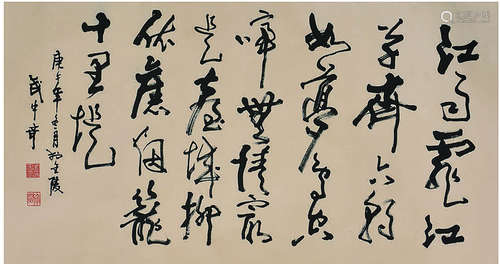 江雨霏霏江
草齊六朝
如夢鳥空
啼無情最
是臺城柳
依舊烟籠
十里堤
庚午年月於金陵
武中奇